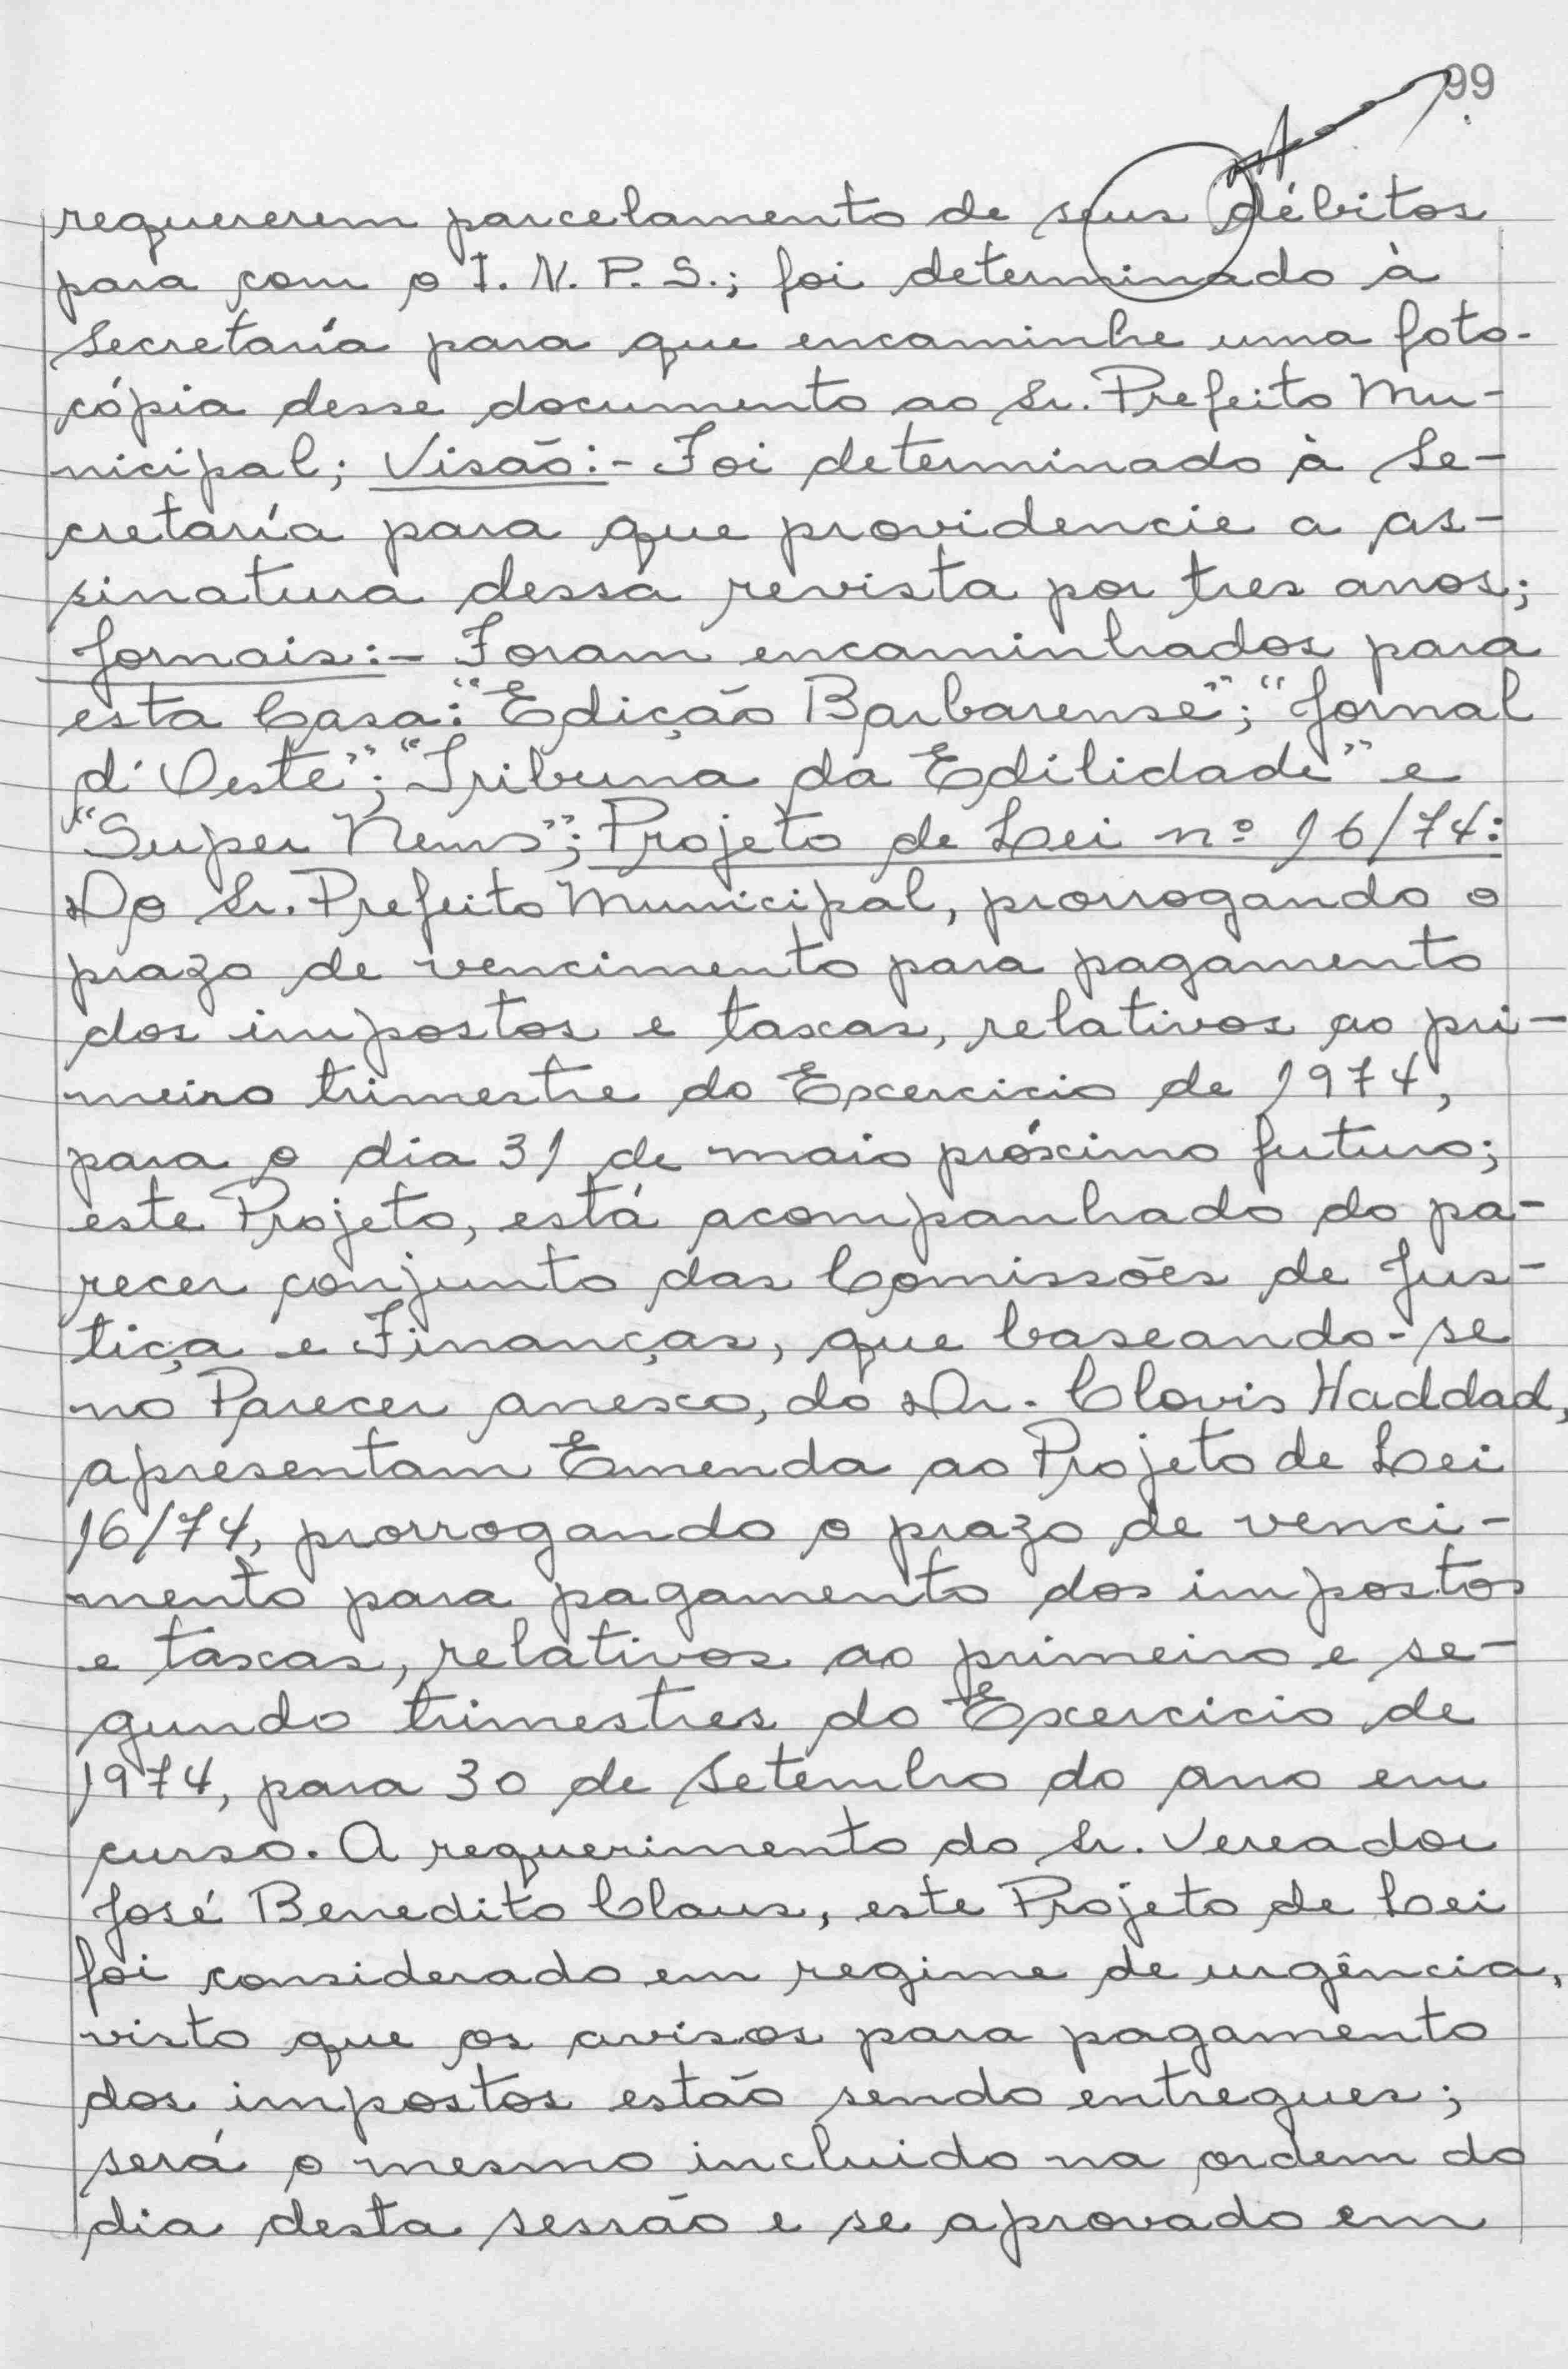 99
requererem parcelamento de seus débitos
para com o I. N. P. S.; foi determinado à
Secretaría para que encaminhe uma foto-
cópia desse documento ao Sr. Prefeito Mu-
nicipal; Visão:- Foi determinado à Se-
cretaría para que providencie a as-
sinatura dessa revista por tres anos;
Jornais:- Foram encaminhados para
esta Casa: "Edição Barbarense"; "Jornal
d'Oeste"; "Tribuna da Edilidade" e
"Super News"; Projeto de Lei nº 16/74:
Do Sr. Prefeito Municipal, prorrogando o
prazo de vencimento para pagamento
dos impostos e taxas, relativos ao pri-
meiro trimestre do Exercicio de 1974,
para o dia 31 de maio próximo futuro;
este Projeto, está acompanhado do pa-
recer conjunto das Comissões de Jus-
tiça e Finanças, que baseando-se
no Parecer anexo, do Dr. Clovis Haddad,
apresentam Emenda ao Projeto de Lei
16/74, prorrogando o prazo de venci-
mento para pagamento dos impostos
e taxas, relativos ao primeiro e se-
gundo trimestres do Exercicio de
1974, para 30 de Setembro do ano em
curso. A requerimento do Sr. Vereador
José Benedito Claus, este Projeto de Lei
foi considerado em regime de urgência,
visto que os avisos para pagamento
dos impostos estão sendo entregues;
será o mesmo incluido na ordem do
dia desta sessão e se aprovado em